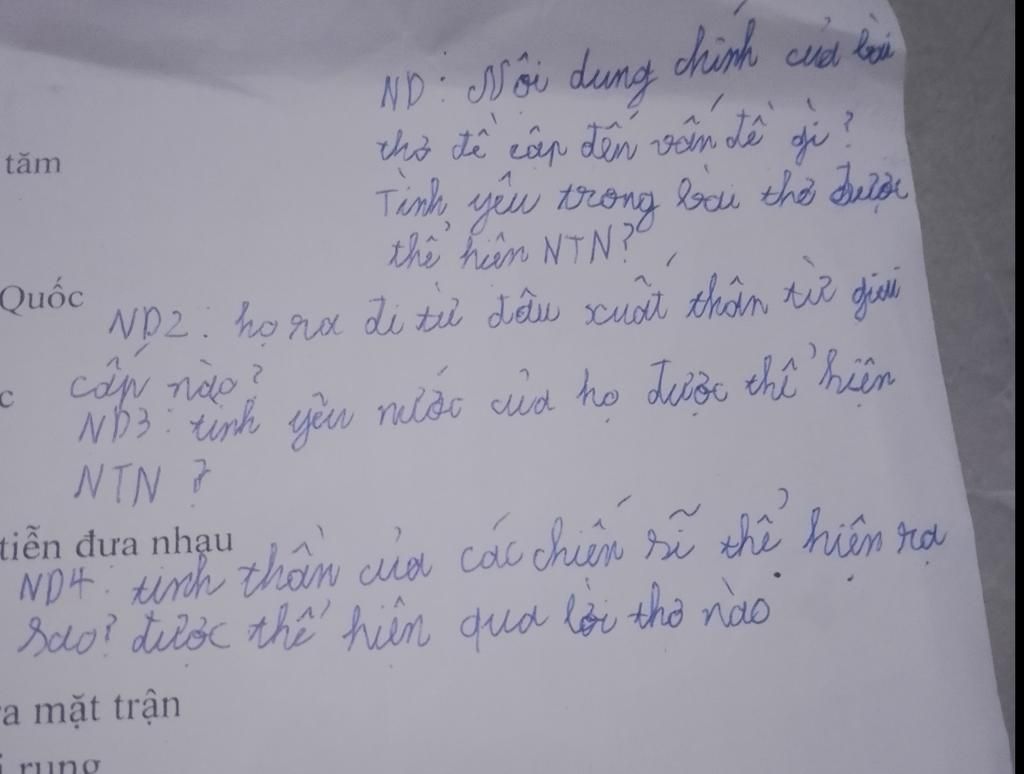 ND: Nội dung chính của bài
thơ đề cập đến vấn đề gì?
tăm
Tình yêu trong bài thơ được
thể hiện NTN?
Quốc
ND2: họ ra đi từ đâu xuất thân từ giai
c cấp nào?
ND3: tình yêu nước của họ được thể hiện
NTN?
tiễn đưa nhau
ND4: tinh thần của các chiến sĩ thể hiện ra
sao? được thể hiện qua lời thơ nào
ra mặt trận
i rung